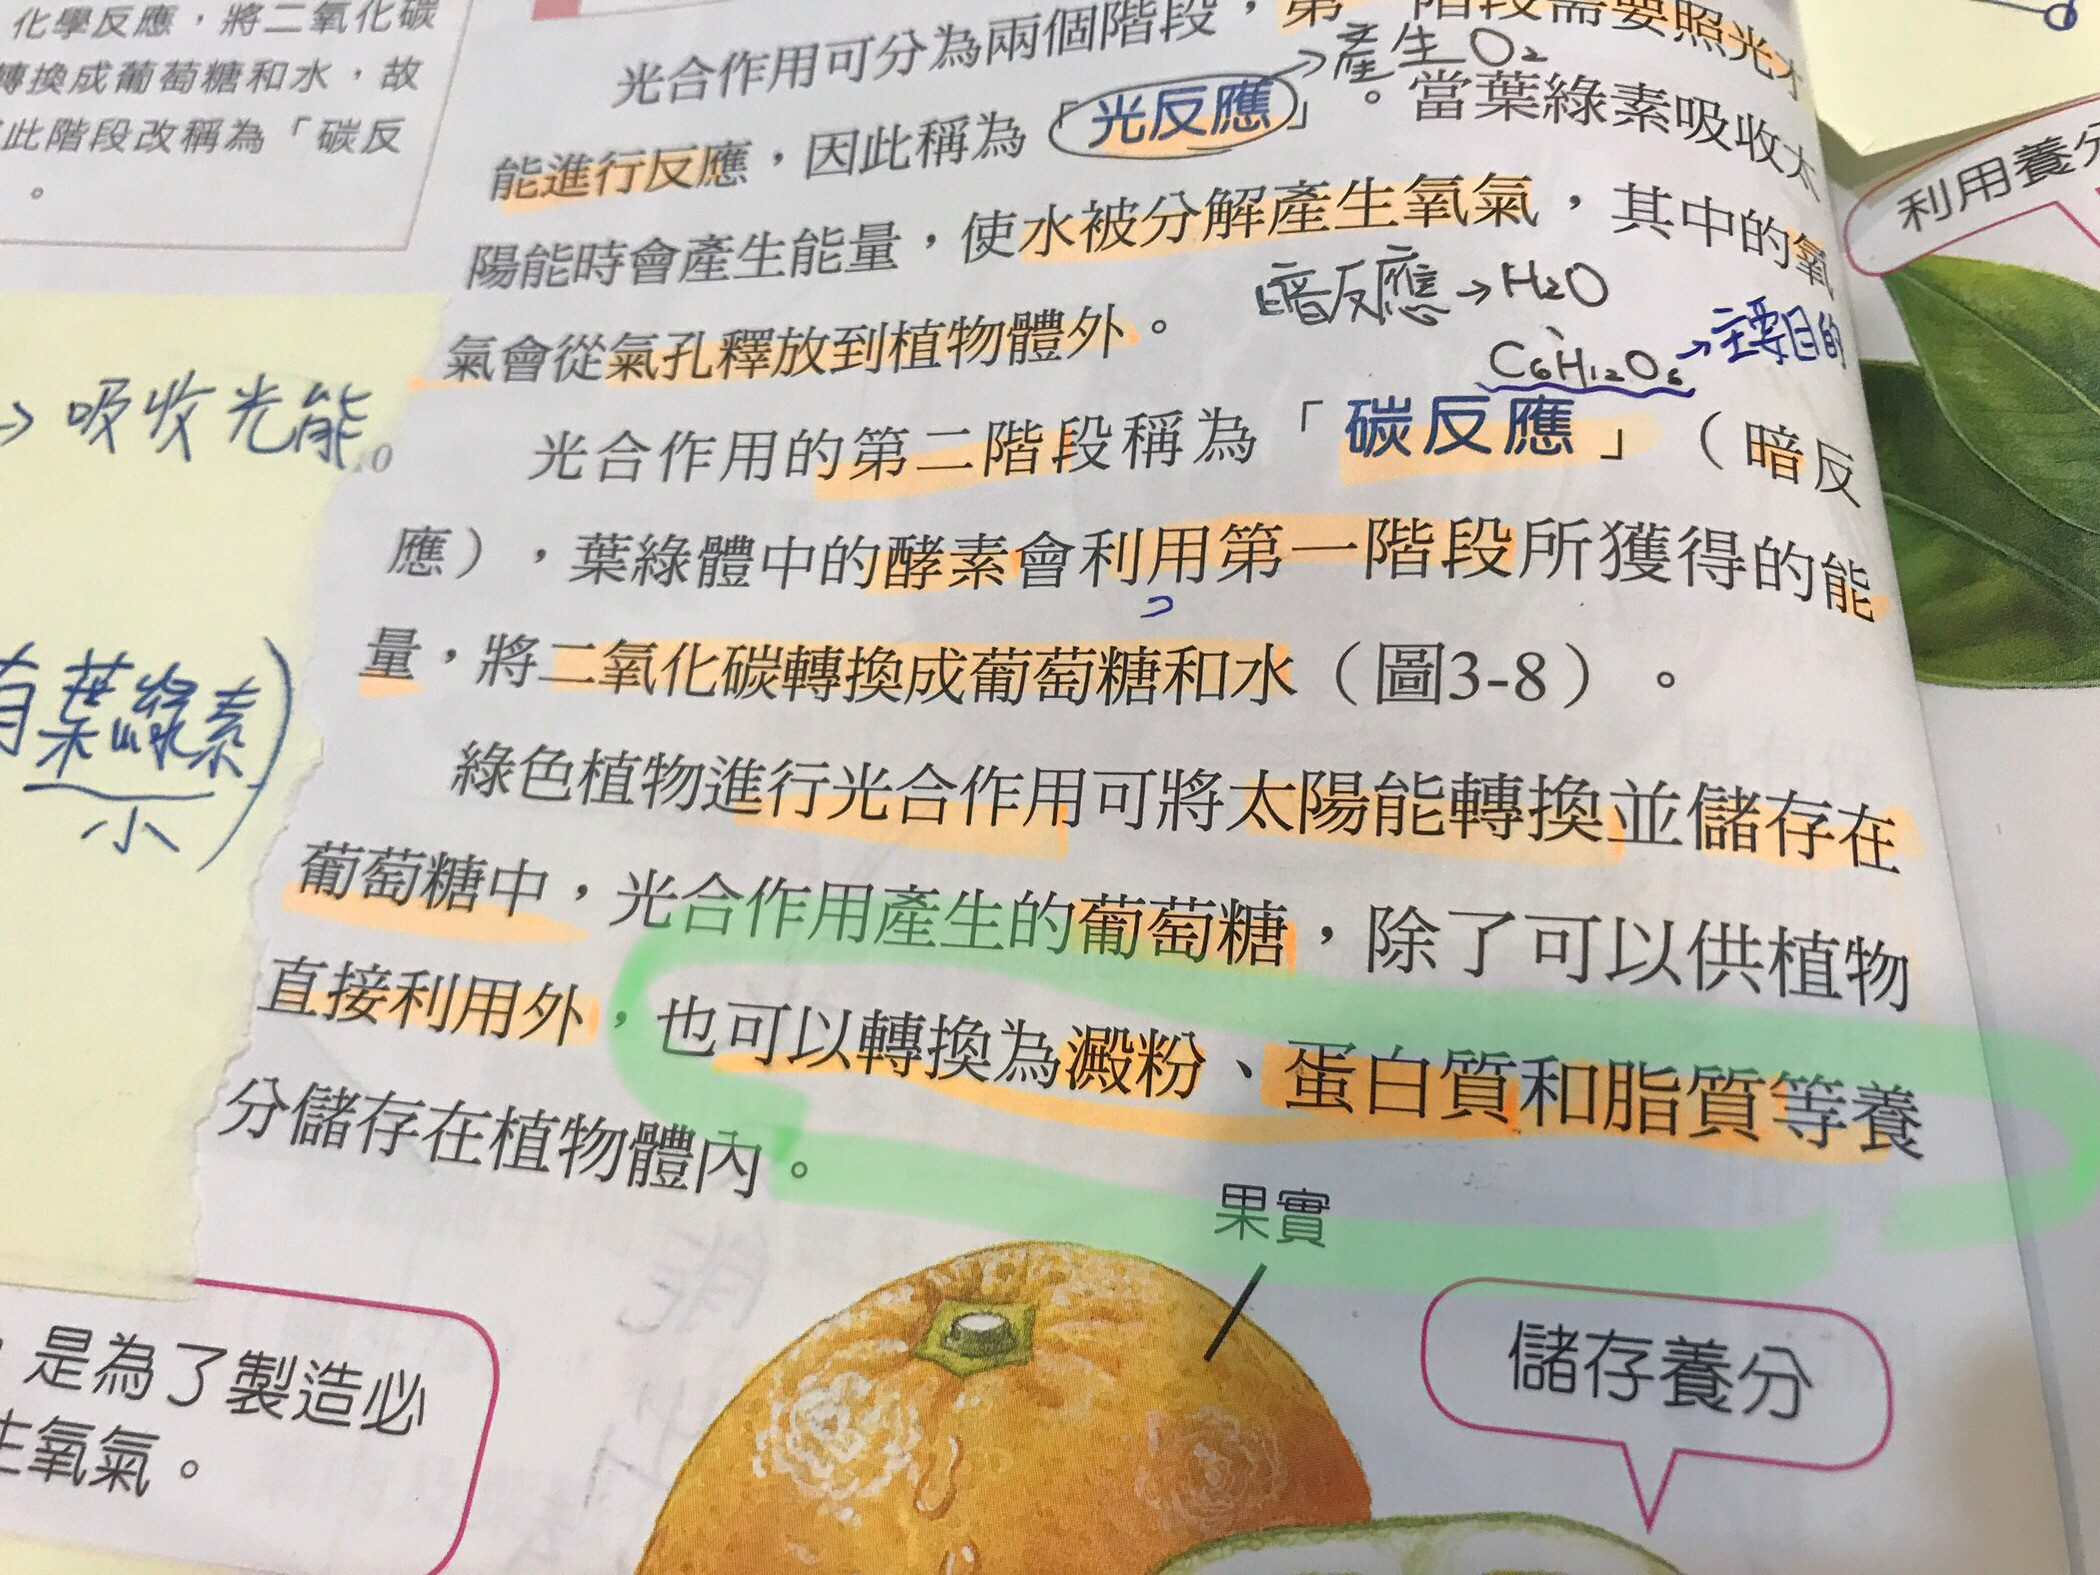 化學反應，將二氧化碳
轉換成葡萄糖和水，故
此階段改稱為「碳反
。
→吸收光能。
10
有葉綠素)
小
光合作用可分為兩個階段，第一階段需要照光才
→產生O₂
能進行反應，因此稱為「光反應」。當葉綠素吸收太
陽能時會產生能量，使水被分解產生氧氣，其中的氧
氣會從氣孔釋放到植物體外。
暗反應→H₂O
、
C₆H₁₂O₆→主要目的
光合作用的第二階段稱為「碳反應」（暗反
應），葉綠體中的酵素會利用第一階段所獲得的能
量，將二氧化碳轉換成葡萄糖和水（圖3-8）。
綠色植物進行光合作用可將太陽能轉換並儲存在
葡萄糖中，光合作用產生的葡萄糖，除了可以供植物
直接利用外，也可以轉換為澱粉、蛋白質和脂質等養
分儲存在植物體內。
利用養分
果實
儲存養分
，是為了製造必
生氧氣。